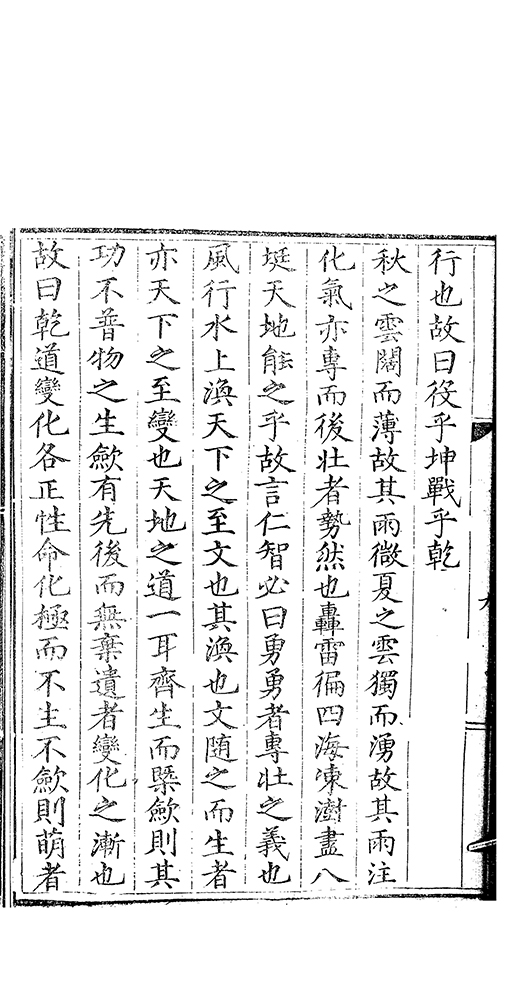 行也故曰役乎坤戰乎乾
秋之雲闊而薄故其雨微夏之雲獨而湧故其雨注
化氣亦專而後壯者勢然也轟雷徧四海凍澍盡八
埏天地能之乎故言仁智必曰勇勇者專壯之義也
風行水上渙天下之至文也其渙也文随之而生者
亦天下之至變也天地之道一耳齊生而槩歛則其
功不普物之生歛有先後而無棄遺者變化之漸也
故曰乾道變化各正性命化極而不生不歛則萌者